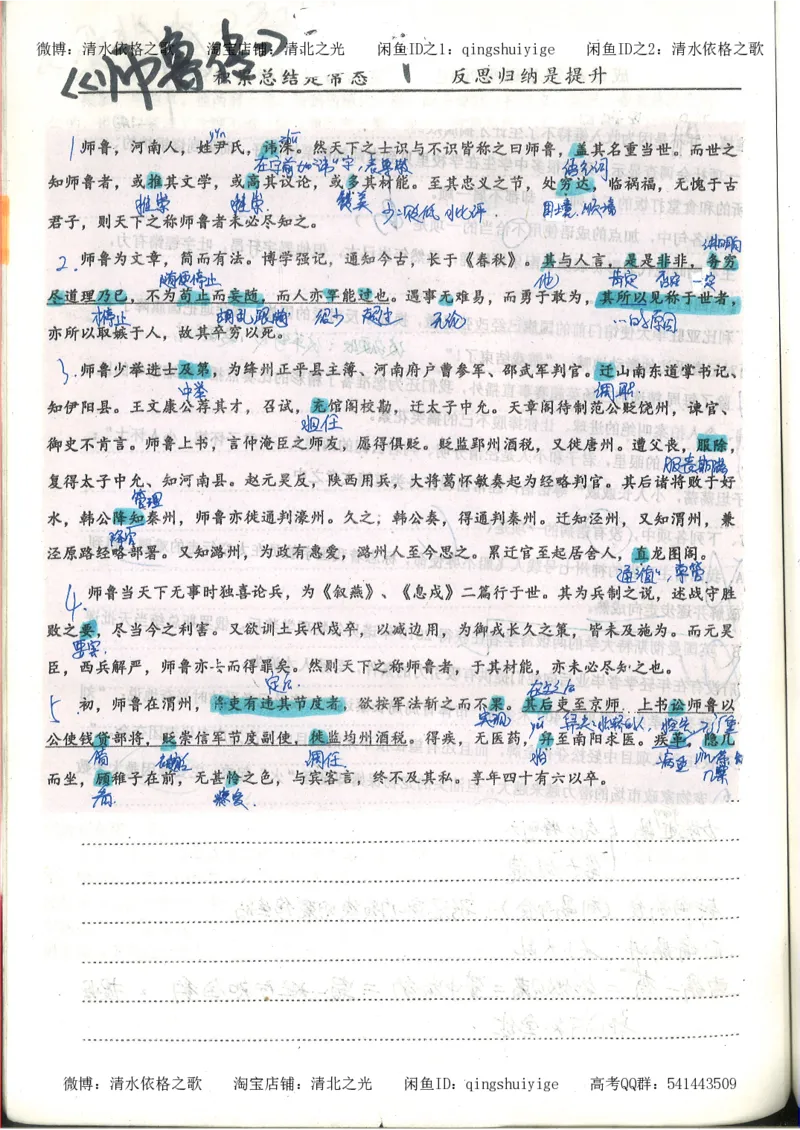 微博：清水依格之歌 淘宝店铺：清北之光 闲鱼ID之1：qingshuiyige 闲鱼ID之2：清水依格之歌
《师鲁传》
积累总结是常态 反思归纳是提升
1 师鲁，河南人，姓尹氏，讳洙。然天下之士识与不识皆称之曰师鲁，盖其名重当世。而世之
知师鲁者，或推其文学，或高其议论，或多其材能。至其忠义之节，处穷达，临祸福，无愧于古
推崇 赞美 困境，顺境
君子，则天下之称师鲁者未必尽知之。
2. 师鲁为文章，简而有法。博学强记，通知今古，长于《春秋》。其与人言，是是非非，务穷
随便停止 他 肯定 否定 一定
尽道理乃已，不为苟止而妄随，而人亦罕能过也。遇事无难易，而勇于敢为，其所以见称于世者，
停止 胡乱跟随 很少 超过 无论 …的原因
亦所以取嫉于人，故其卒穷以死。
3. 师鲁少举进士及第，为绛州正平县主簿、河南府户曹参军、邵武军判官。迁山南东道掌书记、
中举 调职
知伊阳县。王文康公荐其才，召试，充馆阁校勘，迁太子中允。天章阁待制范公贬饶州，谏官、
担任
御史不肯言。师鲁上书，言仲淹臣之师友，愿得俱贬。贬监郢州酒税，又徙唐州。遭父丧，服除，
服丧期满
复得太子中允、知河南县。赵元昊反，陕西用兵，大将葛怀敏奏起为经略判官。其后诸将败于好
管理
水，韩公降知秦州，师鲁亦徙通判濠州。久之，韩公奏，得通判秦州。迁知泾州，又知渭州，兼
降官
泾原路经略部署。又知潞州，为政有惠爱，潞州人至今思之。累迁官至起居舍人，直龙图阁。
通“值”，掌管
4. 师鲁当天下无事时独喜论兵，为《叙燕》、《息戍》二篇行于世。其为兵制之说，述战守胜
败之要，尽当今之利害。又欲训土兵代戍卒，以减边用，为御戎长久之策，皆未及施为。而元昊
要害
臣，西兵解严，师鲁亦去而得罪矣。然则天下之称师鲁者，于其材能，亦未必尽知之也。
5 初，师鲁在渭州，将吏有违其节度者，欲按军法斩之而不果。其后吏至京师，上书讼师鲁以
实现
公使钱贷部将，贬崇信军节度副使，徙监均州酒税。得疾，无医药，舁至南阳求医。疾革，隐几
调任 抬 病重
而坐，顾稚子在前，无甚怜之色，与宾客言，终不及其私。享年四十有六以卒。
看 怜爱
微博：清水依格之歌 淘宝店铺：清北之光 闲鱼ID：qingshuiyige 高考QQ群：541443509